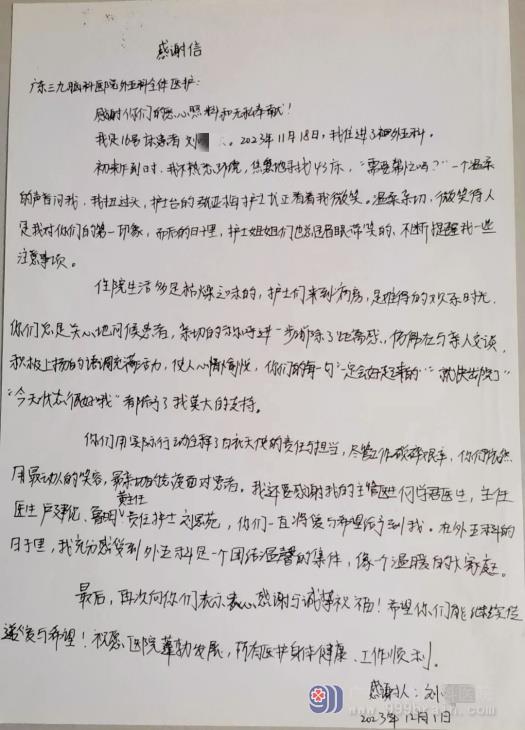 感谢信
广东三九脑科医院外五科全体医护:
感谢你们的悉心照料和无私奉献!
我是16号床患者刘 2023年11月18日,我住进了神外五科。
初来乍到时,我不熟悉环境,焦急地寻找43床,“需要帮忙吗?”一个温柔
的声音问我,我扭过头,护士台的 护士正看着我微笑。温柔亲切,微笑待人
是我对你们的第一印象,而后的日子里,护士姐姐们也总是眉眼带笑的,不断提醒我一些
注意事项。
住院生活多是枯燥乏味的,护士们来到病房,是难得的欢乐时光,
你们总是关心地问候患者,亲切的称呼进一步消除了距离感,仿佛在与亲人交谈,
积极上扬的语调充满活力,使人心情愉悦,你们的每一句“一定会好起来的”“就快出院了”
“今天状态很好哦”都给予了我莫大的支持。
你们用实际行动诠释了白衣天使的责任与担当,尽管工作琐碎艰辛,你们依然
用最动人的笑容,最亲切的态度面对患者。我还要感谢我的主管医生何学君医生,主任
黄主任
医生卢建侃、鲁明!责任护士刘思苑,你们一直将爱与希望给予到我。在外五科的
日子里,我充分感受到外五科是一个团结温馨的集体,像一个温暖的大家庭。
最后,再次向你们表示衷心感谢与诚挚祝福!希望你们能继续传
递爱与希望!祝愿医院蓬勃发展,所有医护身体健康、工作顺利。
感谢人:刘
2023年12月1日
www.999brain.com